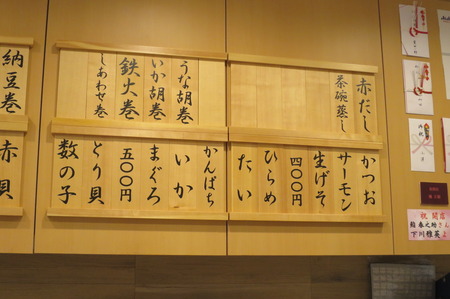 赤だし
茶碗蒸し
うな胡巻
いか胡巻
鉄火巻
しあわせ巻
納豆巻
かつお
サーモン
生げそ
四〇〇円
ひらめ
たい
かんぱち
いか
まぐろ
五〇〇円
とり貝
数の子
赤貝
祝開店
鮨 春之助さん
下川雅英より